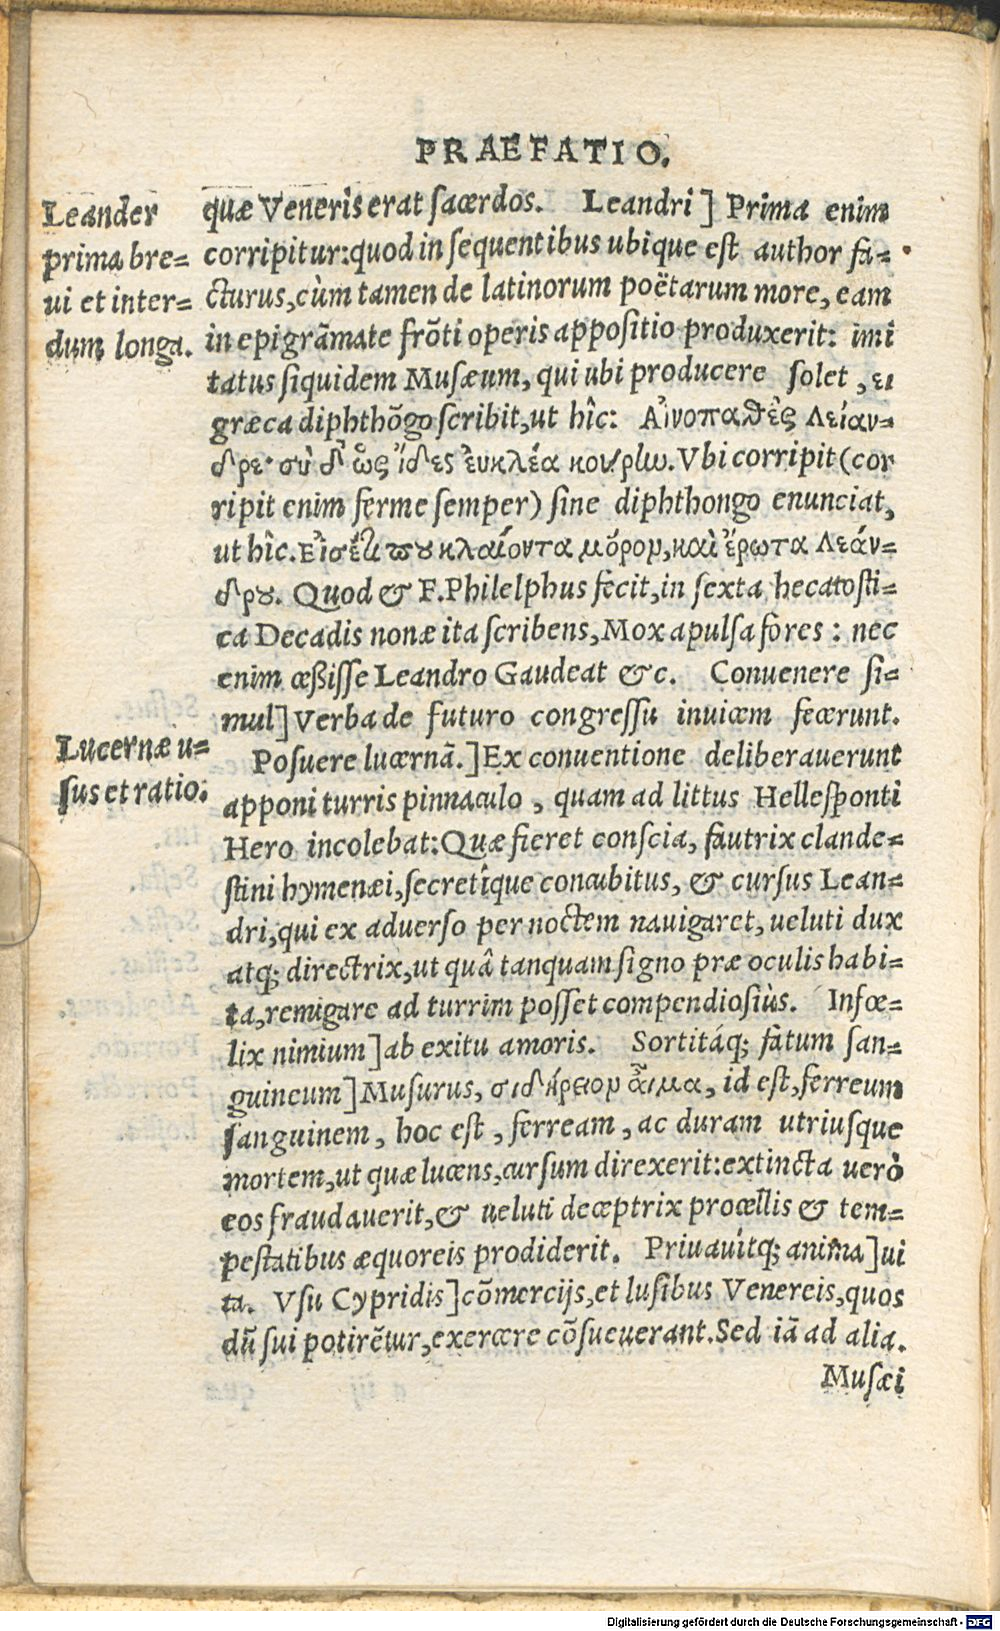 PRAEFATIO.
Leander
prima bre=
ui et inter=
dum longa.
quæ Veneris erat sacerdos. Leandri] Prima enim
corripitur: quod in sequentibus ubique est author fa=
cturus, cùm tamen de latinorum poëtarum more, eam
in epigrãmate frõti operis appositio produxerit: imi
tatus siquidem Musæum, qui ubi producere solet, ει
græca diphthõgo scribit, ut hîc: Αἰνοπαθὲς Λείαν=
δρε· σὺ δ' ὡς ἴδες ἐυκλέα κούρην. Vbi corripit (cor
ripit enim ferme semper) sine diphthongo enunciat,
ut hîc. Εἰσέτι που κλαίοντα μόρον, καὶ ἔρωτα Λεάν=
δρου. Quod & F. Philelphus fecit, in sexta hecatosti=
ca Decadis nonæ ita scribens, Mox apulsa fores: nec
enim cæßisse Leandro Gaudeat &c. Conuenere si=
mul] Verba de futuro congressu inuicem fecerunt.
Lucernæ u=
sus et ratio.
Posuere lucernã.] Ex conuentione deliberauerunt
apponi turris pinnaculo, quam ad littus Hellesponti
Hero incolebat: Quæ fieret conscia, fautrix clande=
stini hymenæi, secretîque concubitus, & cursus Lean=
dri, qui ex aduerso per noctem nauigaret, ueluti dux
atq; directrix, ut quâ tanquam signo præ oculis habi=
ta, remigare ad turrim posset compendiosiùs. Infœ=
lix nimium] ab exitu amoris. Sortitáq; fatum san=
guineum] Musurus, σιδήρειον αἷμα, id est, ferreum
sanguinem, hoc est, ferream, ac duram utriusque
mortem, ut quæ lucens, cursum direxerit: extincta uerò
eos fraudauerit, & ueluti deceptrix procellis & tem=
pestatibus æquoreis prodiderit. Priuauítq; anima] ui
ta. Vsu Cypridis] cõmercijs, et lusibus Venereis, quos
dũ sui potirẽtur, exercere cõsueuerant. Sed iã ad alia.
Musæi
Digitalisierung gefördert durch die Deutsche Forschungsgemeinschaft - DFG